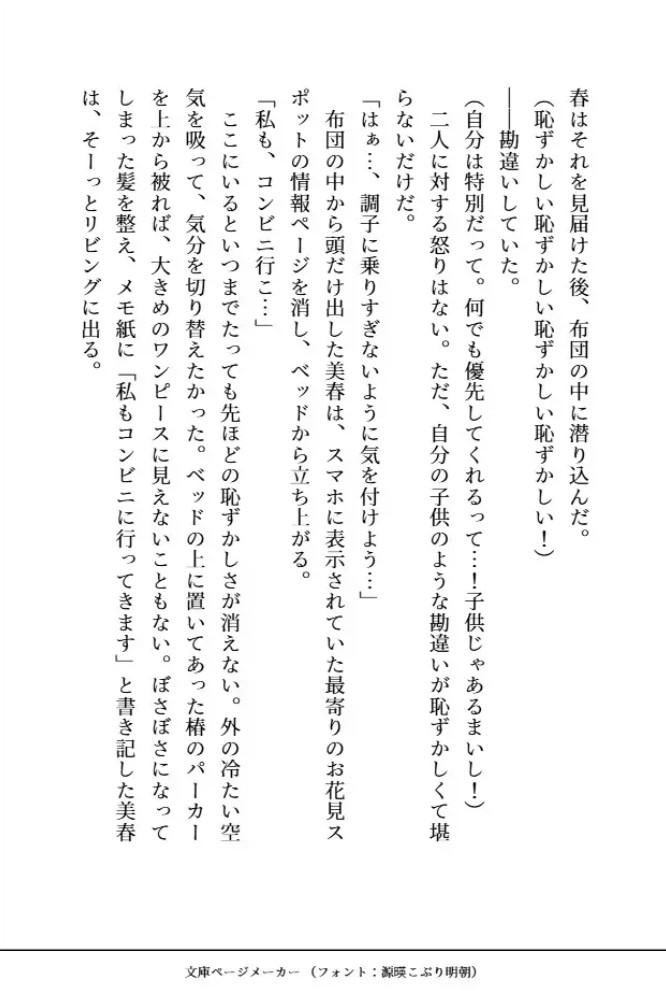 春はそれを見届けた後、布団の中に潜り込んだ。
(恥ずかしい恥ずかしい恥ずかしい恥ずかしい!)
――勘違いしていた。
(自分は特別だって。何でも優先してくれるって…!子供じゃあるまいし!)
　二人に対する怒りはない。ただ、自分の子供のような勘違いが恥ずかしくて堪
らないだけだ。
「はぁ…、調子に乗りすぎないように気を付けよう…」
　布団の中から頭だけ出した美春は、スマホに表示されていた最寄りのお花見ス
ポットの情報ページを消し、ベッドから立ち上がる。
「私も、コンビニ行こ…」
　ここにいるといつまでたっても先ほどの恥ずかしさが消えない。外の冷たい空
気を吸って、気分を切り替えたかった。ベッドの上に置いてあった椿のパーカー
を上から被れば、大きめのワンピースに見えないこともない。ぼさぼさになって
しまった髪を整え、メモ紙に「私もコンビニに行ってきます」と書き記した美春
は、そーっとリビングに出る。
文庫ページメーカー (フォント:源暎こぶり明朝)